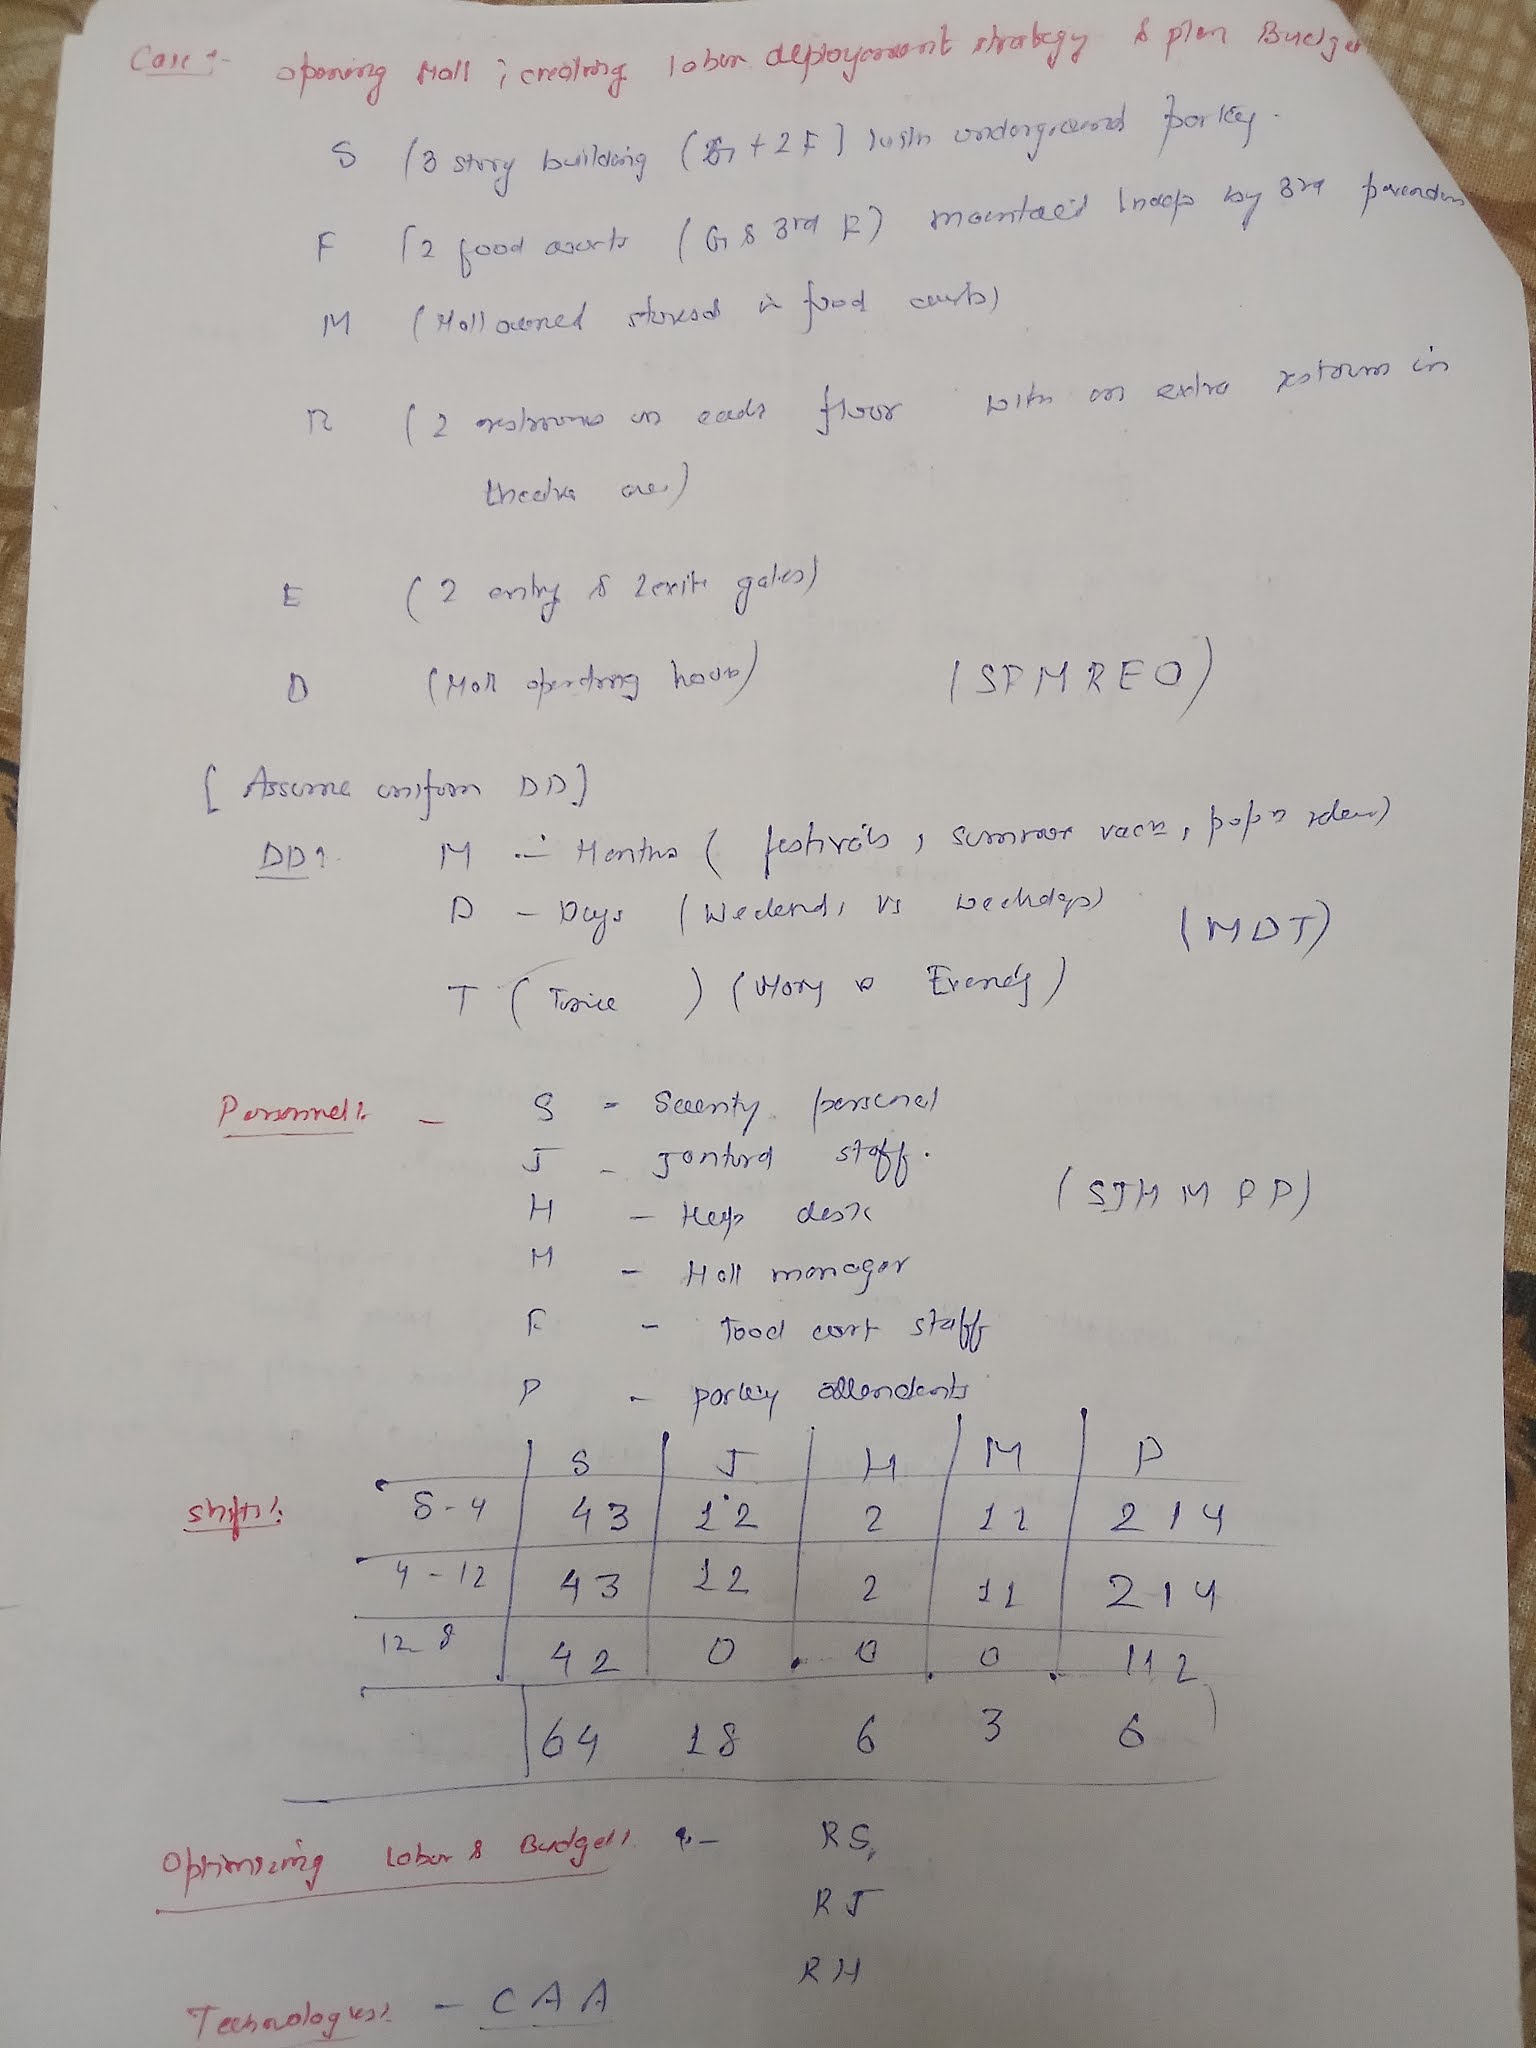 Case :- opening Mall ; creating labor deployment strategy & plan Budge
S (3 story building (G + 2F) with underground parking.
F (2 food courts (G & 3rd F) maintained by 3rd
M (Mall owned stores in food courts)
R (2 restrooms in each floor with an extra restroom in
theatre area)
E (2 entry & 2 exit gates)
O (Mall operating hours) (SFMREO)
[Assume uniform DD]
DD:- M :- Months (festivals, summer vacn, popn
D - Days (Weekends vs weekdays) (MDT)
T ( ) (Morg vs Eveng)
Personnel :- S - Security personel
J - Janitorial staff.
H - Help desk (SJHMFP)
M - Mall manager
F - Food cort staff
P - parking attendants
S J H M P
Shifts:- 8-4 43 12 2 11 214
4-12 43 12 2 11 214
12-8 42 0 0 0 112
64 18 6 3 6
Optimizing labor & Budget :- RS,
RJ
RH
Technologies:- - CAA